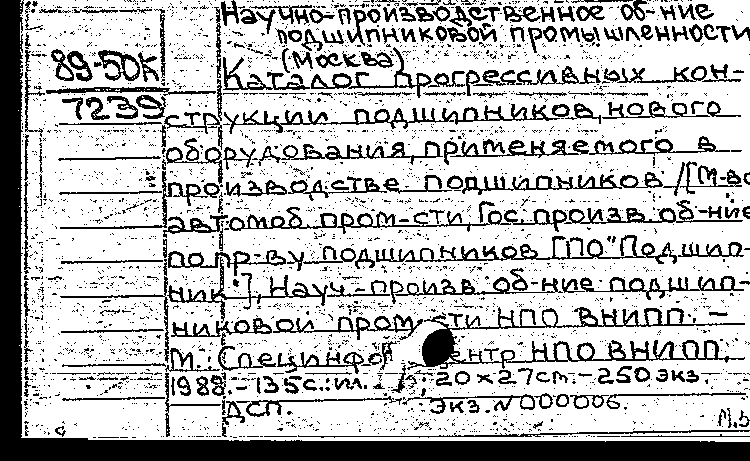 Научно-производственное об-ние
подшипниковой промышленности
(Москва)
89-50К
7239
Каталог прогрессивных кон-
струкции подшипников, нового
оборудования, применяемого в
производстве подшипников /[М-во
автомоб. пром-сти, Гос. произв. об-ние
по пр-ву подшипников ГПО "Подшип-
ник"], Науч.-произв. об-ние подшип-
никовой пром-сти НПО ВНИПП. –
М.: НПО ВНИПП,
1988. – 135с.: ил.; 20×27см. – 250 экз.
ДСП. Экз. N 000006.